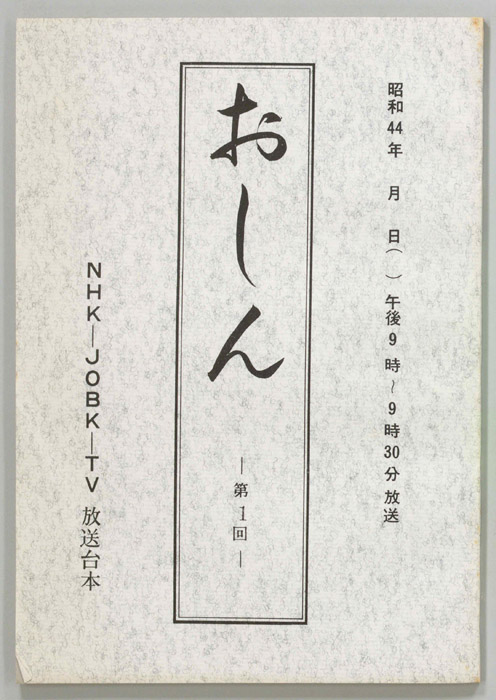 昭和44年　月　日(　)午後9時〜9時30分放送
おしん
—第1回—
NHK—JOBK—TV 放送台本